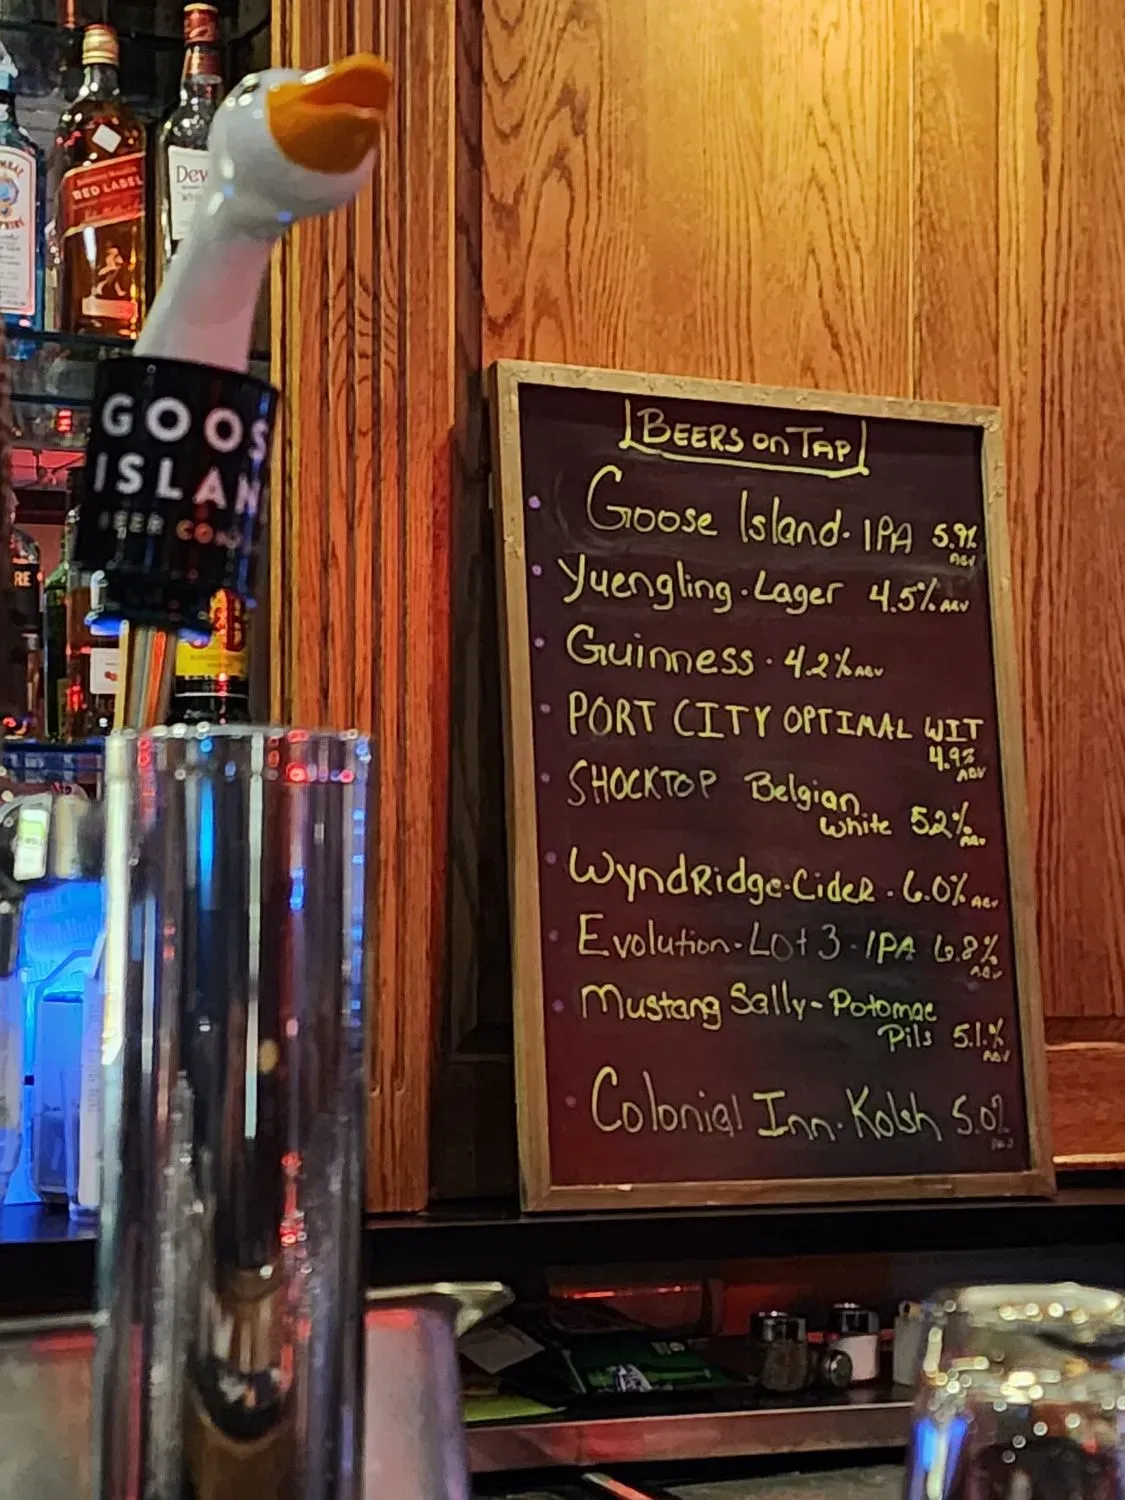 RED LABEL
Dew
GOOS
ISLAN
BEER CO
BEERS on TAP
Goose Island · IPA 5.9%
ABV
Yuengling · Lager 4.5% ABV
Guinness · 4.2% ABV
PORT CITY OPTIMAL WIT
4.9%
ABV
SHOCKTOP Belgian
White 5.2%
ABV
WyndRidge · Cider · 6.0% ABV
Evolution · Lot 3 · IPA 6.8%
ABV
Mustang Sally - Potomac
Pils 5.1.%
ABV
Colonial Inn · Kolsh 5.0%